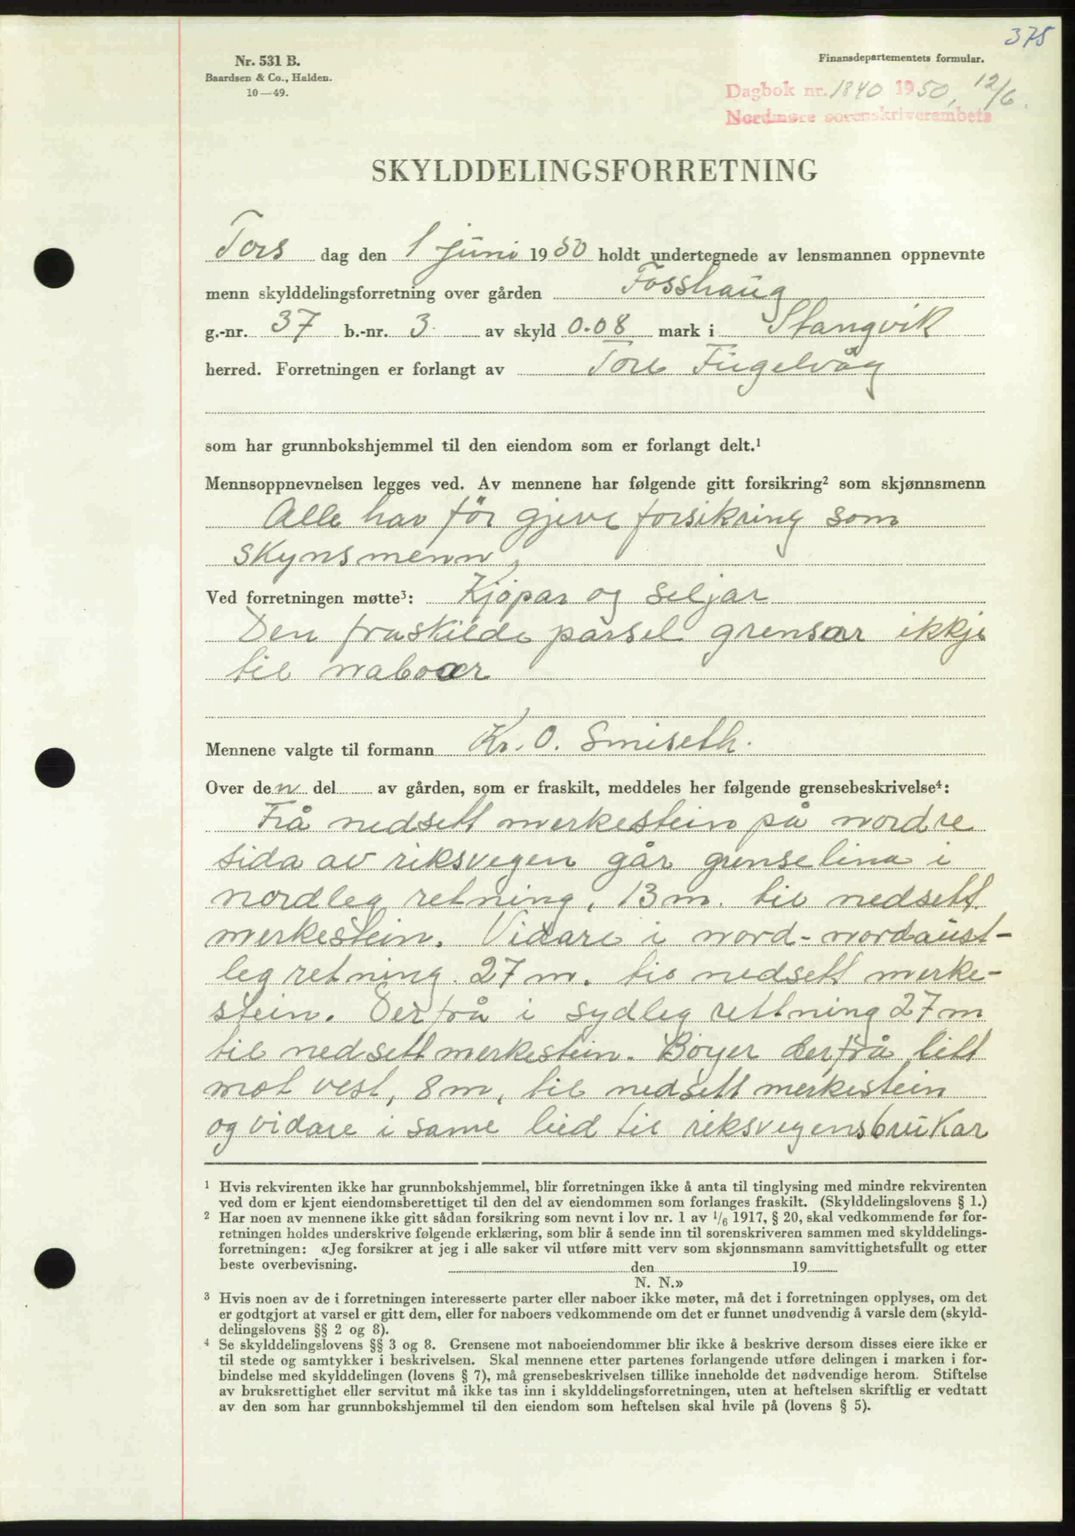 375
Nr. 531 B.
Baardsen & Co., Halden.
10—49.
Finansdepartementets formular.
Dagbok nr. 1840 1950, 12/6.
Nordmøre sorenskriverembete
SKYLDDELINGSFORRETNING
Tors dag den 1 juni 1950 holdt undertegnede av lensmannen oppnevnte
menn skylddelingsforretning over gården Fosshaug
g.-nr. 37 b.-nr. 3. av skyld 0.08 mark i Stangvik
herred. Forretningen er forlangt av Tore Fugelvåg
som har grunnbokshjemmel til den eiendom som er forlangt delt.¹
Mennsoppnevnelsen legges ved. Av mennene har følgende gitt forsikring² som skjønnsmenn
Alle har för gjeve forsikring som
skynsmenn,
Ved forretningen møtte³: Kjöpar og seljar
Den fraskilde parsel grensar ikkje
til naboar
Mennene valgte til formann Kr. O. Smiseth.
Over den del av gården, som er fraskilt, meddeles her følgende grensebeskrivelse⁴:
Frå nedsett merkestein på nordre
sida av riksvegen går grenselina i
nordleg retning, 13 m. til nedsett
merkestein. Vidare i nord-nordaust-
leg retning. 27 m. til nedsett merke-
stein. Derfrå i sydleg rettning 27 m
til nedsett merkestein. Böyer derfrå litt
mot vest, 8 m, til nedsett merkestein
og vidare i same leid til riksvegensbrukar
¹ Hvis rekvirenten ikke har grunnbokshjemmel, blir forretningen ikke å anta til tinglysing med mindre rekvirenten
ved dom er kjent eiendomsberettiget til den del av eiendommen som forlanges fraskilt. (Skylddelingslovens § 1.)
² Har noen av mennene ikke gitt sådan forsikring som nevnt i lov nr. 1 av 1/6 1917, § 20, skal vedkommende før for-
retningen holdes underskrive følgende erklæring, som blir å sende inn til sorenskriveren sammen med skylddelings-
forretningen: «Jeg forsikrer at jeg i alle saker vil utføre mitt verv som skjønnsmann samvittighetsfullt og etter
beste overbevisning. den 19
N. N.»
³ Hvis noen av de i forretningen interesserte parter eller naboer ikke møter, må det i forretningen opplyses, om det
er godtgjort at varsel er gitt dem, eller for naboers vedkommende om det er funnet unødvendig å varsle dem (skyld-
delingslovens §§ 2 og 8).
⁴ Se skylddelingslovens §§ 3 og 8. Grensene mot naboeiendommer blir ikke å beskrive dersom disses eiere ikke er
til stede og samtykker i beskrivelsen. Skal mennene etter partenes forlangende utføre delingen i marken i for-
bindelse med skylddelingen (lovens § 7), må grensebeskrivelsen tillike inneholde det nødvendige herom. Stiftelse
av bruksrettighet eller servitut må ikke tas inn i skylddelingsforretningen, uten at heftelsen skriftlig er vedtatt
av den som har grunnbokshjemmel til den eiendom som heftelsen skal hvile på (lovens § 5).